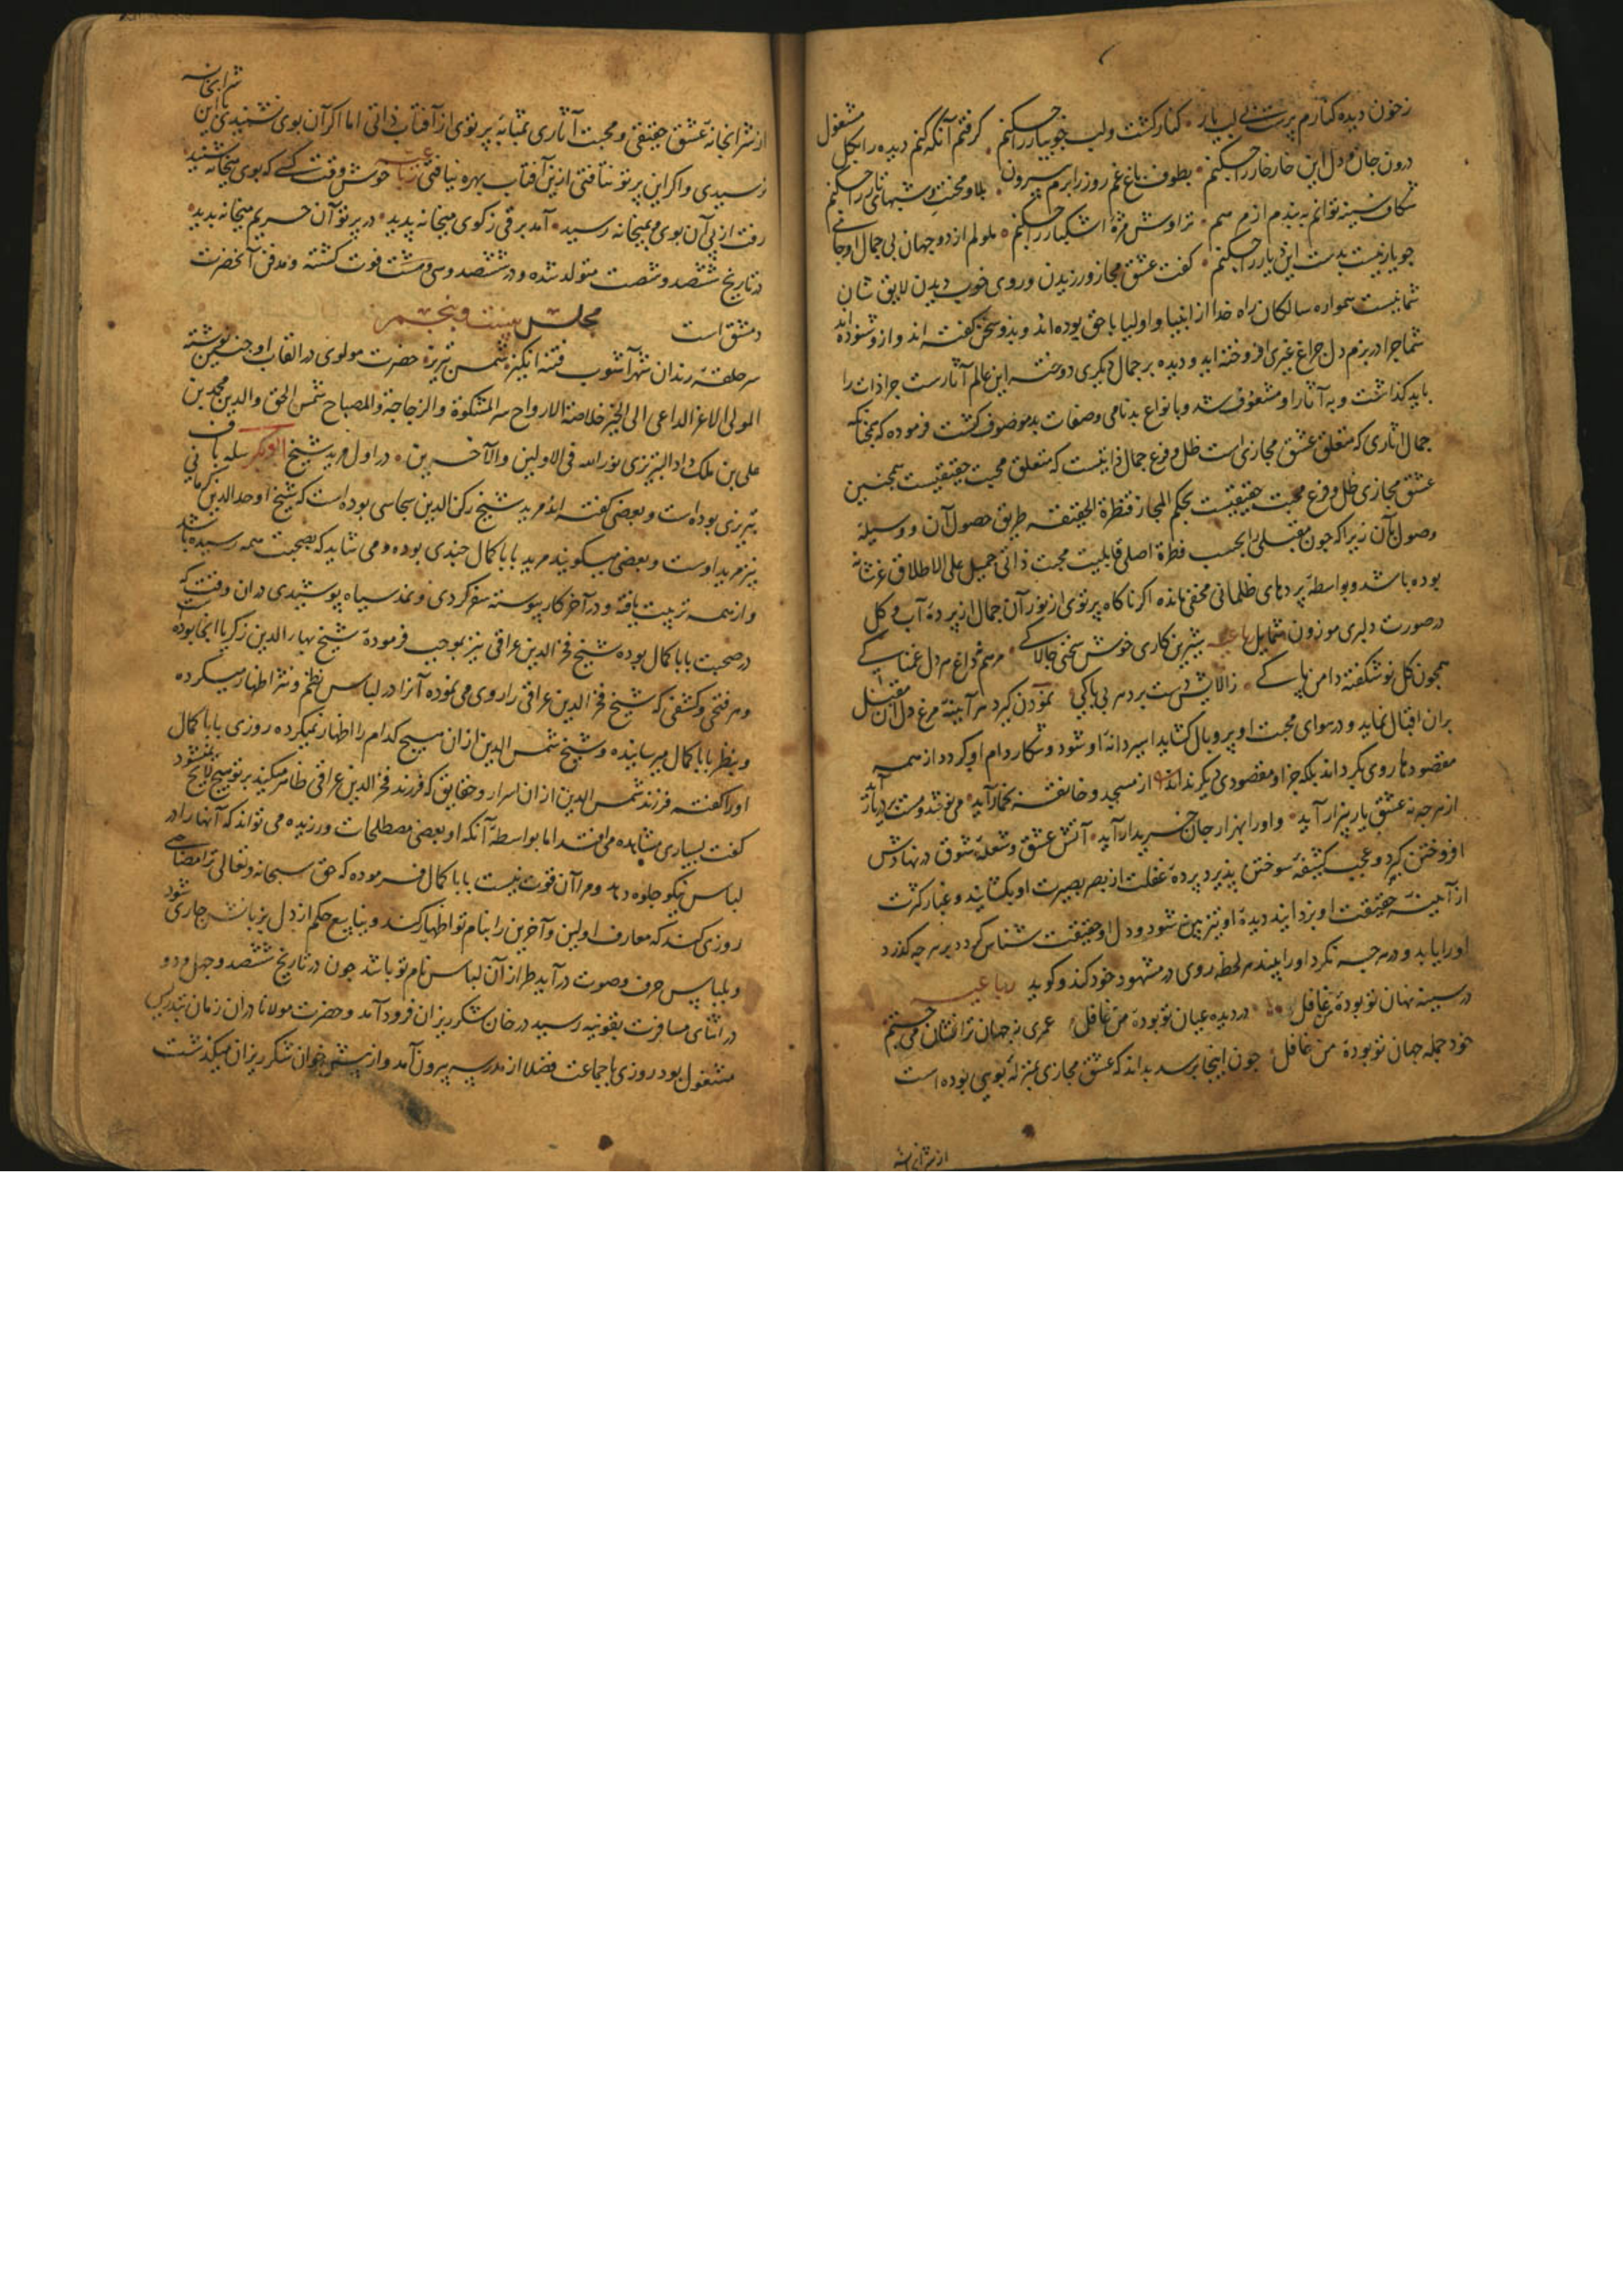 زخون دیده کنارم پرست بی لب یار کنار کشت ولب جویبار را چکنم گرفتم آنکه کنم دیده را بکل مشغول
درون جان و دل این خارخار را چکنم بطوف باغ غم روز را برم بیرون بلا و محنت شبهای تار را چکنم
شکاف سینه توانم به بندم از مرهم تراوش مژهٔ اشکبار را چکنم ملولم از دو جهان بی جمال او جامی
چو یار نیست بدست این دیار را چکنم گفت عشق مجاز ورزیدن و روی خوب دیدن لایق شان
شما نیست همواره سالکان راه خدا از انبیا و اولیا با حق بوده اند و بدو سخن گفته اند و ازو شنوده اند
شما چرا در بزم دل چراغ غیری افروخته اید و دیده بر جمال دیگری دوخته این عالم آثارست چرا ذات را
باید گذاشت و به آثار او مشغوف شد و بانواع بدنامی و صفات بد موصوف گشت فرموده که چنانکه
جمال آثاری که متعلق عشق مجازی است ظل و فرع جمال ذاتیست که متعلق محبت حقیقیست همچنین
عشق مجازی ظل و فرع محبت حقیقیست بحکم المجاز قنطرة الحقیقه طریق حصول آن و وسیلهٔ
وصول بآن زیرا که چون مقبلی را بحسب فطرة اصلی قابلیت محبت ذاتی جمیل علی الاطلاق عز شانه
بوده باشد و بواسطهٔ پردهای ظلمانی مخفی مانده اگر ناگاه پرتوی از نور آن جمال از پردهٔ آب و گل
در صورت دلبری موزون شمایل رباعیه شیرین کاری خوش سخنی چالاکی مرهم نه داغ هر دل غمناکی
همچون گل نو شکفته دامن پاکی زآلایش دست برد هر بی باکی نمودن گیرد هر آینه مرغ دل آن مقبل
بران اقبال نماید و در هوای محبت او پر و بال گشاید اسیر دانهٔ او شود و شکار دام او گردد از همه
مقصودها روی بگرداند بلکه جز او مقصودی دیگر نداند از مسجد و خانقه بخمار آید می نوشد و مست بر در یار آید
از هر چه نه عشق یار بیزار آید و او را بهزار جان خریدار آید آتش عشق و شعلهٔ شوق در نهادش
افروختن گیرد و حجب کثیفه سوختن پذیرد پردهٔ غفلت از بصر بصیرت او بکشایند و غبار کثرت
از آیینهٔ حقیقت او بزدایند دیدهٔ او تیزبین شود و دل او حقیقت شناس گردد بر هر چه گذرد
او را یابد و در هر چه نگرد او را بیند هر لحظه روی در مشهود خود کند و گوید رباعیه
در سینه نهان تو بودهٔ من غافل در دیده عیان تو بودهٔ من غافل عمری ز جهان ترا نشان می جستم
خود جمله جهان تو بودهٔ من غافل چون اینجا برسد بداند که عشق مجازی بمنزلهٔ بویی بوده است
از شرابخانه
از شرابخانهٔ عشق حقیقی و محبت آثاری بمثابهٔ پرتوی از آفتاب ذاتی اما اگر آن بوی نشنیدی باین شرابخانه
نرسیدی و اگر این پرتو نتافتی ازین آفتاب بهره نیافتی رباعیه خوش وقت کسی که بوی میخانه شنید
رفت از پی آن بوی و بمیخانه رسید آمد برقی ز کوی میخانه پدید در پرتو آن حریم میخانه بدید
در تاریخ ششصد و شصت متولد شده و در ششصد و سی و هشت فوت کشته و مدفن آنحضرت
دمشق است مجلس بیست و پنجم
سر حلقهٔ رندان شهرآشوب فتنه انگیز شمس تبریز حضرت مولوی در القاب او چنین نوشته
المولی الاعز الداعی الی الخیر خلاصة الارواح سر المشکوة والزجاجة والمصباح شمس الحق والدین محمد بن
علی بن ملک داد التبریزی نور الله فی الاولین والآخرین در اول مرید شیخ ابوبکر سله باف
تبریزی بوده است و بعضی گفته اند مرید شیخ رکن الدین سجاسی بوده است که شیخ اوحد الدین کرمانی
نیز مرید اوست و بعضی میگویند مرید بابا کمال جندی بوده و می شاید که بصحبت همه رسیده باشد
و از همه تربیت یافته و در آخر کار پیوسته سفر کردی و نمد سیاه پوشیدی در ان وقت که
در صحبت بابا کمال بوده شیخ فخر الدین عراقی نیز بموجب فرمودهٔ شیخ بهاء الدین زکریا آنجا بوده است
و هر فتحی و کشفی که شیخ فخر الدین عراقی را روی می نموده آنرا در لباس نظم و نثر اظهار میکرده
و بنظر بابا کمال میرسانیده و شیخ شمس الدین از ان هیچ کدام را اظهار نمیکرده روزی بابا کمال
او را گفته فرزند شمس الدین از ان اسرار و حقایق که فرزند فخر الدین عراقی ظاهر میکند بر تو هیچ لایح نمیشود
گفت بیشتر ازان مشاهده می افتد اما بواسطهٔ آنکه او بعضی مصطلحات ورزیده می تواند که آنها را در
لباس نیکو جلوه دهد و مرا آن قوت نیست بابا کمال فرموده که حق سبحانه و تعالی ترا مصاحبی
روزی کند که معارف اولین و آخرین را بنام تو اظهار کند و ینابیع حکم از دل بر زبانش جاری شود
و بلباس حرف و صوت درآید طراز آن لباس نام تو باشد چون در تاریخ ششصد و چهل و دو
در اثنای مسافرت بقونیه رسید در خان شکرریزان فرود آمد و حضرت مولانا در ان زمان بتدریس
مشغول بود روزی با جماعت فضلا از مدرسه بیرون آمد و از پیش خوان شکرریزان میگذشت